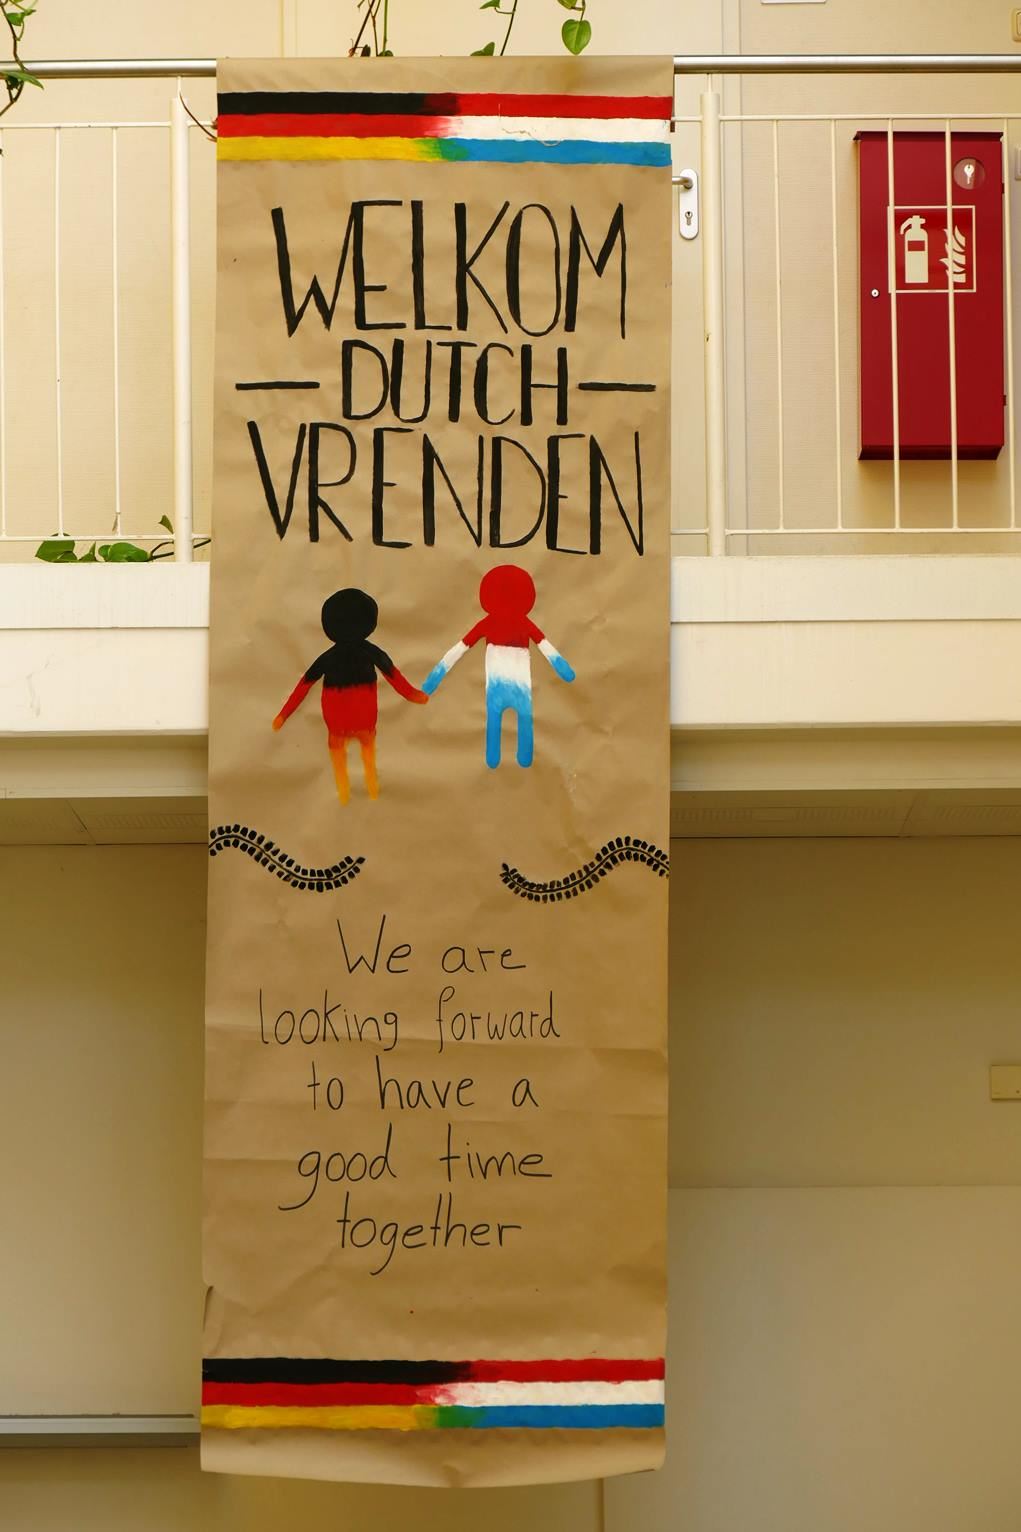 WELKOM
— DUTCH —
VRENDEN
We are
looking forward
to have a
good time
together